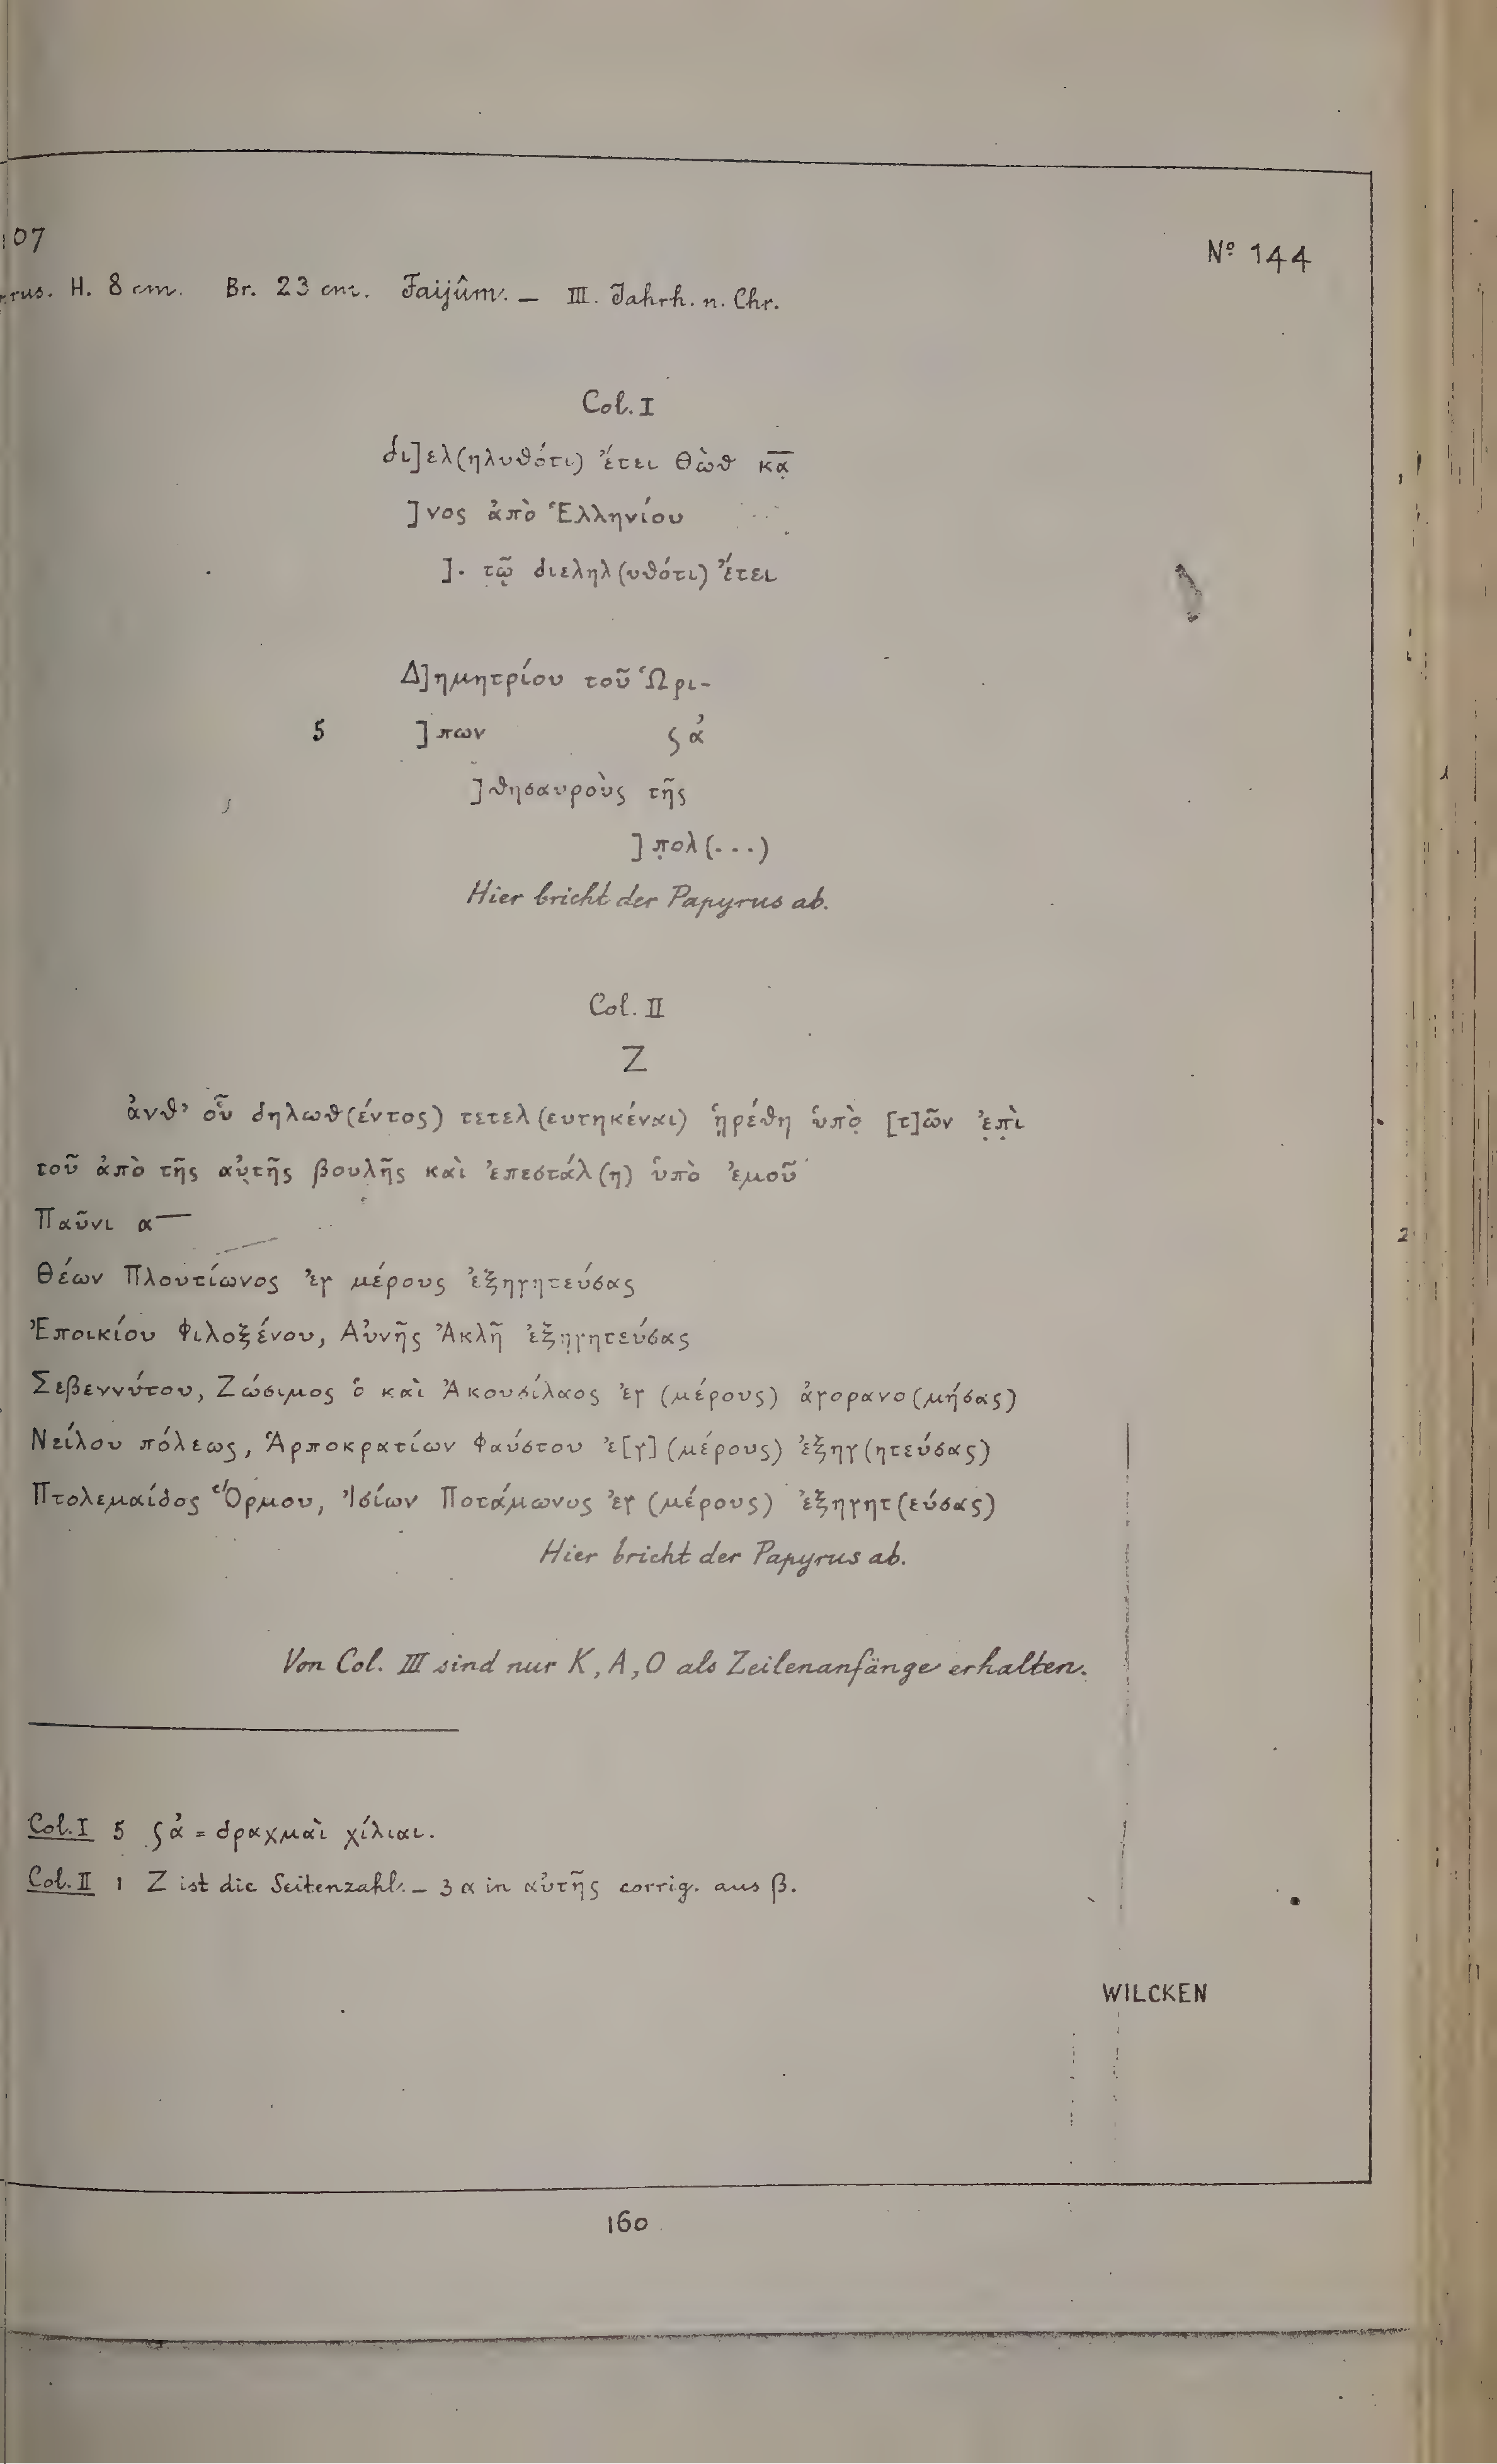 107
Nº 144
rus. H. 8 cm. Br. 23 cm. Faijûm. — III. Jahrh. n. Chr.
Col. I
δι]ελ(ηλυθότι) ἔτει Θὼθ κα̣̅
]νος ἀπὸ Ἑλληνίου
]. τῷ̣ διεληλ(υθότι) ἔτει
Δ]ημητρίου τοῦ Ὡρι-
5 ]πων ϛ ἀ
]θησαυροὺς τῆς
]π̣ολ(...)
Hier bricht der Papyrus ab.
Col. II
Z
ἀνθ’ οὗ δηλωθ(έντος) τετελ(ευτηκέναι) ᾑρέθη ὑπὸ̣ [τ]ῶν ἐ̣π̣ὶ
τοῦ ἀπὸ τῆς αὐτῆς βουλῆς καὶ ἐπεστάλ(η) ὑπὸ ἐμοῦ
Παῦνι α—
Θέων Πλουτίωνος ἐγ μέρους ἐξηγητεύσας
Ἐποικίου Φιλοξένου, Αὐνῆς Ἀκλῆ ἐξη̣γητεύσας
Σεβεννύτου, Ζώσιμος ὁ καὶ Ἀκουσίλαος ἐγ (μέρους) ἀγορανο(μήσας)
Νείλου πόλεως, Ἁρποκρατίων Φαύστου ἐ[γ] (μέρους) ἐξηγ(ητεύσας)
Πτολεμαίδος Ὅρμου, Ἰσίων Ποτάμωνος ἐγ (μέρους) ἐξηγητ(εύσας)
Hier bricht der Papyrus ab.
Von Col. III sind nur K, A, O als Zeilenanfänge erhalten.
Col. I 5 ϛ ἀ = δραχμαὶ χίλιαι.
Col. II 1 Z ist die Seitenzahl. — 3 α in αὐτῆς corrig. aus β.
WILCKEN
160